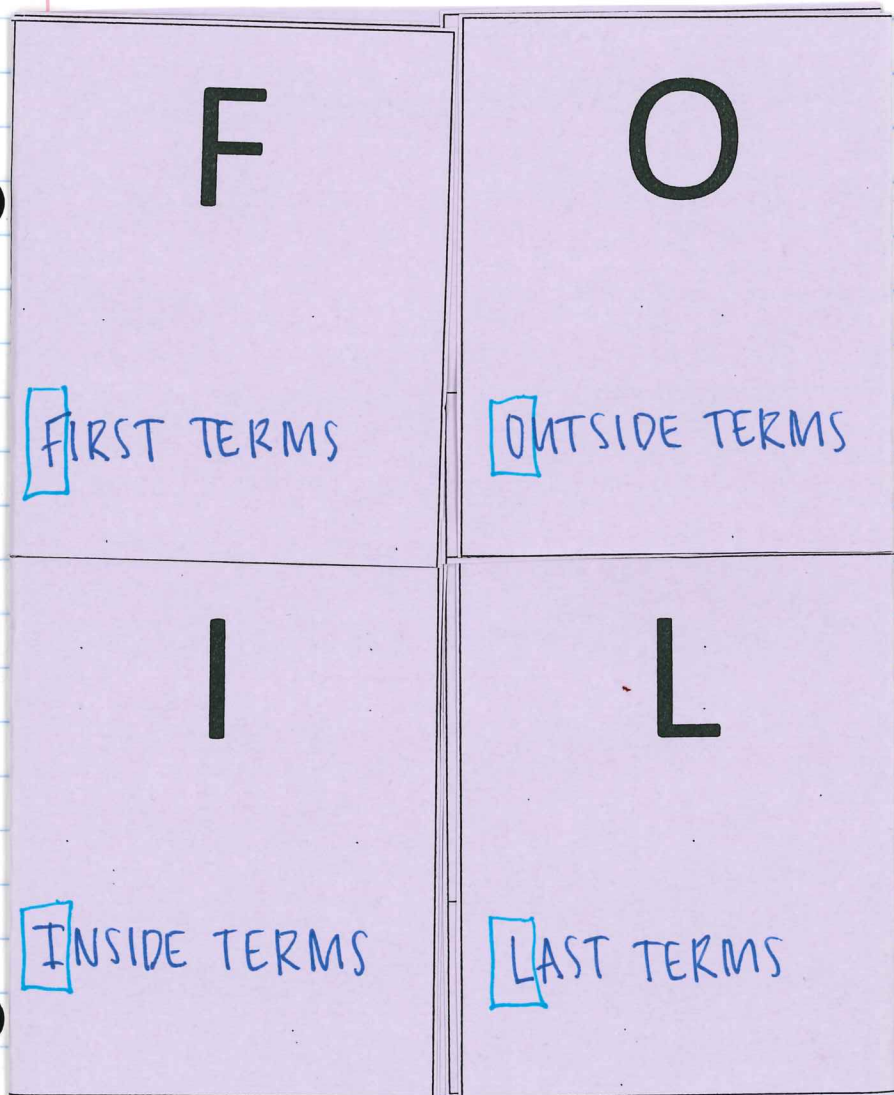 F
FIRST TERMS
O
OUTSIDE TERMS
I
INSIDE TERMS
L
LAST TERMS